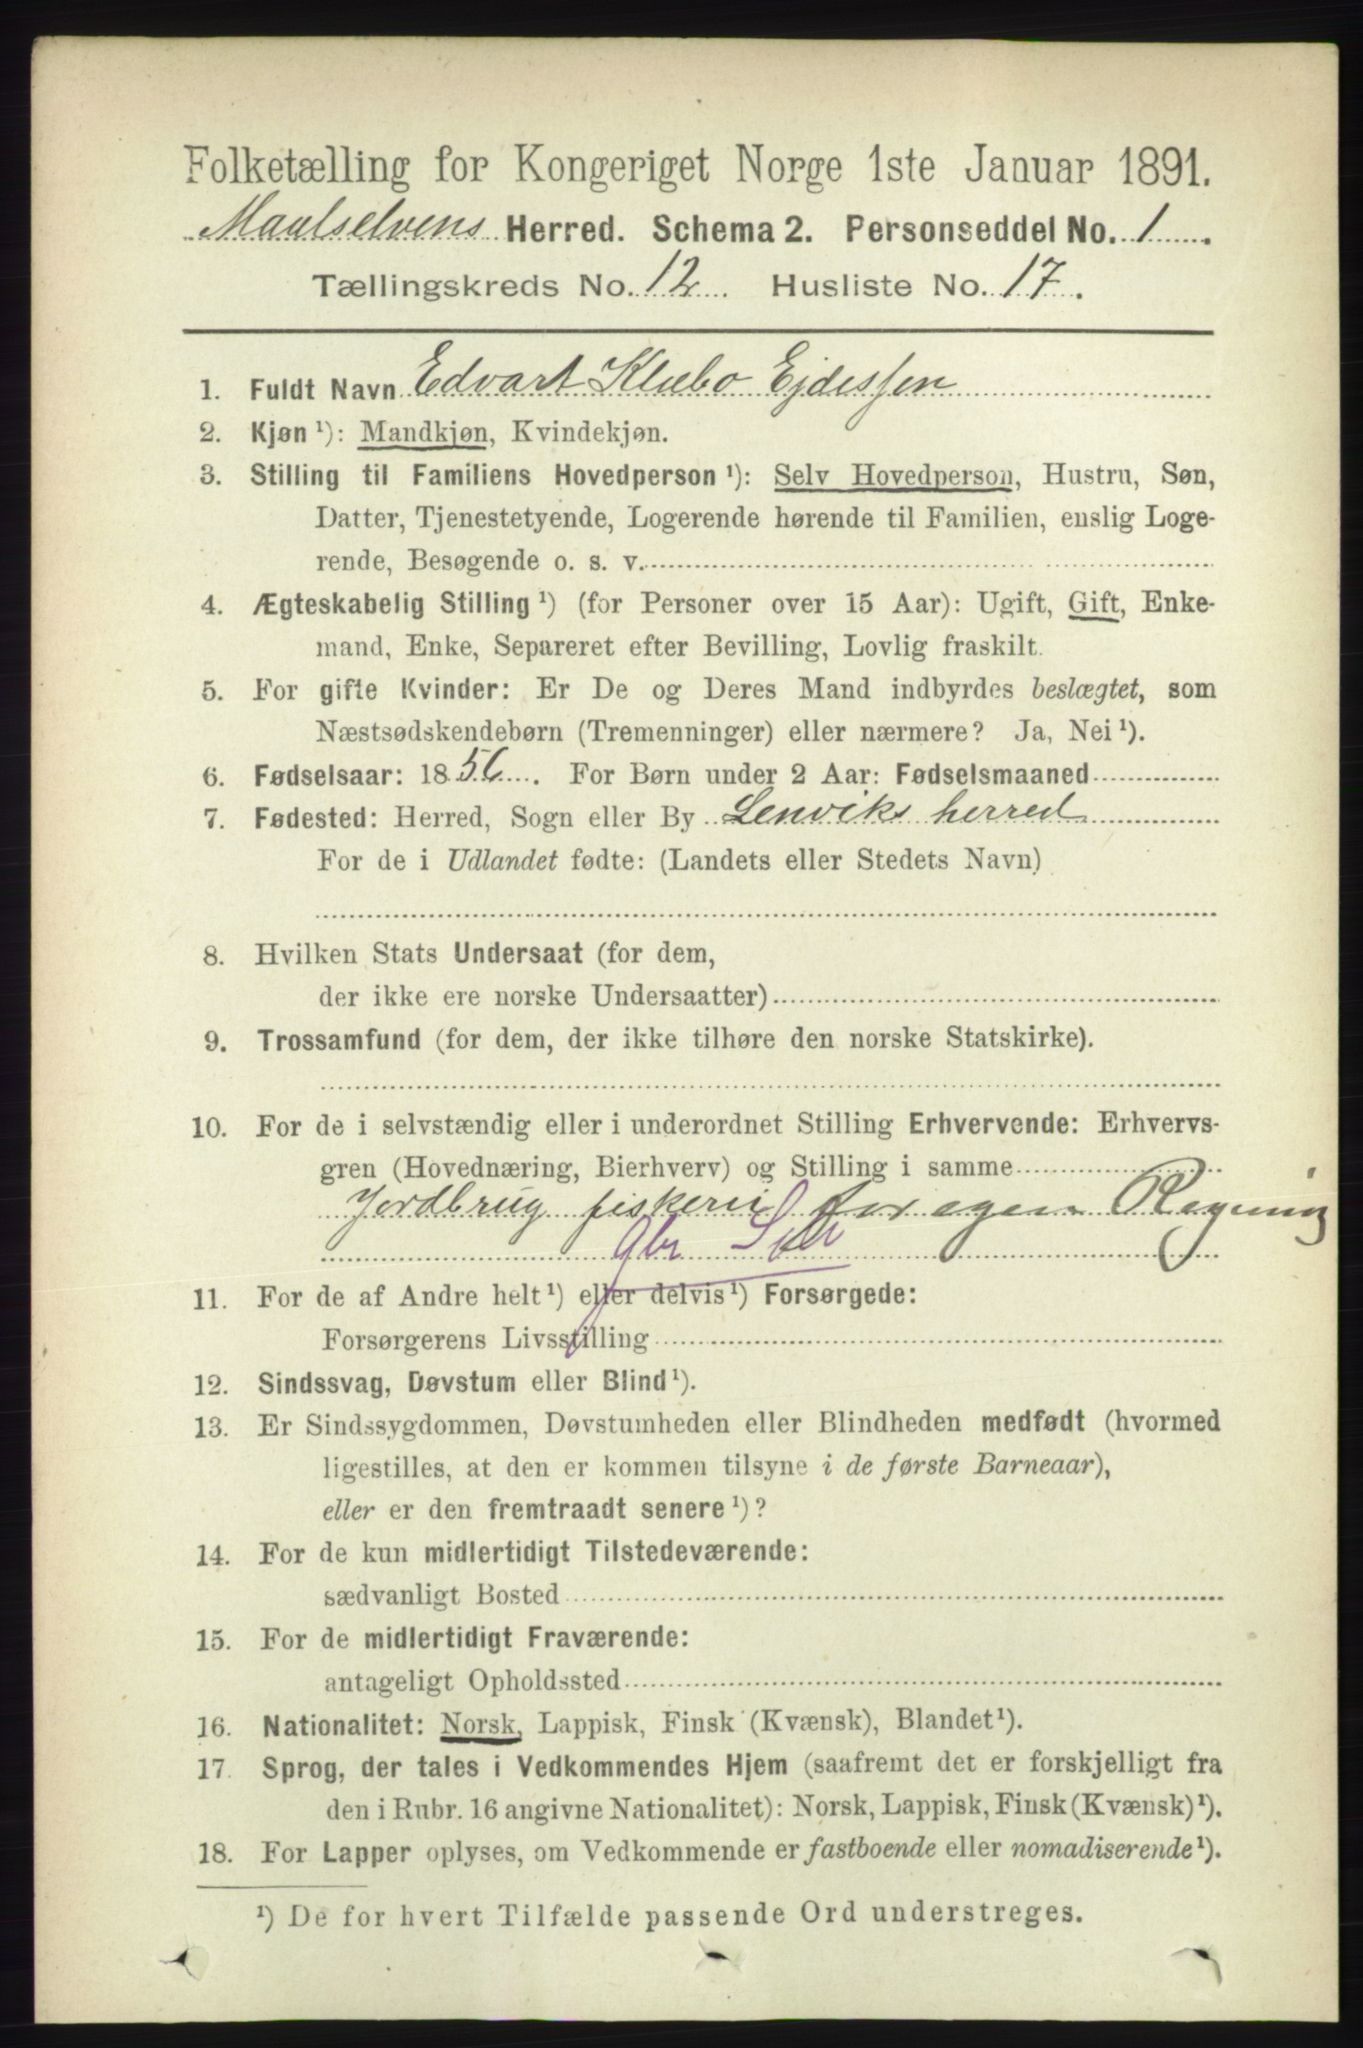 Folketælling for Kongeriget Norge 1ste Januar 1891.
Maalselvens Herred. Schema 2. Personseddel No. 1.
Tællingskreds No. 12. Husliste No. 17.
1. Fuldt Navn Edvart Klæbo Ejdessen
2. Kjøn ¹): Mandkjøn, Kvindekjøn.
3. Stilling til Familiens Hovedperson ¹): Selv Hovedperson, Hustru, Søn,
Datter, Tjenestetyende, Logerende hørende til Familien, enslig Loge-
rende, Besøgende o. s. v.
4. Ægteskabelig Stilling ¹) (for Personer over 15 Aar): Ugift, Gift, Enke-
mand, Enke, Separeret efter Bevilling, Lovlig fraskilt.
5. For gifte Kvinder: Er De og Deres Mand indbyrdes beslægtet, som
Næstsødskendebørn (Tremenninger) eller nærmere? Ja, Nei ¹).
6. Fødselsaar: 1856. For Børn under 2 Aar: Fødselsmaaned
7. Fødested: Herred, Sogn eller By Lenviks herred
For de i Udlandet fødte: (Landets eller Stedets Navn)
8. Hvilken Stats Undersaat (for dem,
der ikke ere norske Undersaatter)
9. Trossamfund (for dem, der ikke tilhøre den norske Statskirke).
10. For de i selvstændig eller i underordnet Stilling Erhvervende: Erhvervs-
gren (Hovednæring, Bierhverv) og Stilling i samme
Jordbrug fiskeri for egen Regning
gbr
11. For de af Andre helt ¹) eller delvis ¹) Forsørgede:
Forsørgerens Livsstilling
12. Sindssvag, Døvstum eller Blind ¹).
13. Er Sindssygdommen, Døvstumheden eller Blindheden medfødt (hvormed
ligestilles, at den er kommen tilsyne i de første Barneaar),
eller er den fremtraadt senere ¹)?
14. For de kun midlertidigt Tilstedeværende:
sædvanligt Bosted
15. For de midlertidigt Fraværende:
antageligt Opholdssted
16. Nationalitet: Norsk, Lappisk, Finsk (Kvænsk), Blandet ¹).
17. Sprog, der tales i Vedkommendes Hjem (saafremt det er forskjelligt fra
den i Rubr. 16 angivne Nationalitet): Norsk, Lappisk, Finsk (Kvænsk) ¹).
18. For Lapper oplyses, om Vedkommende er fastboende eller nomadiserende ¹).
¹) De for hvert Tilfælde passende Ord understreges.